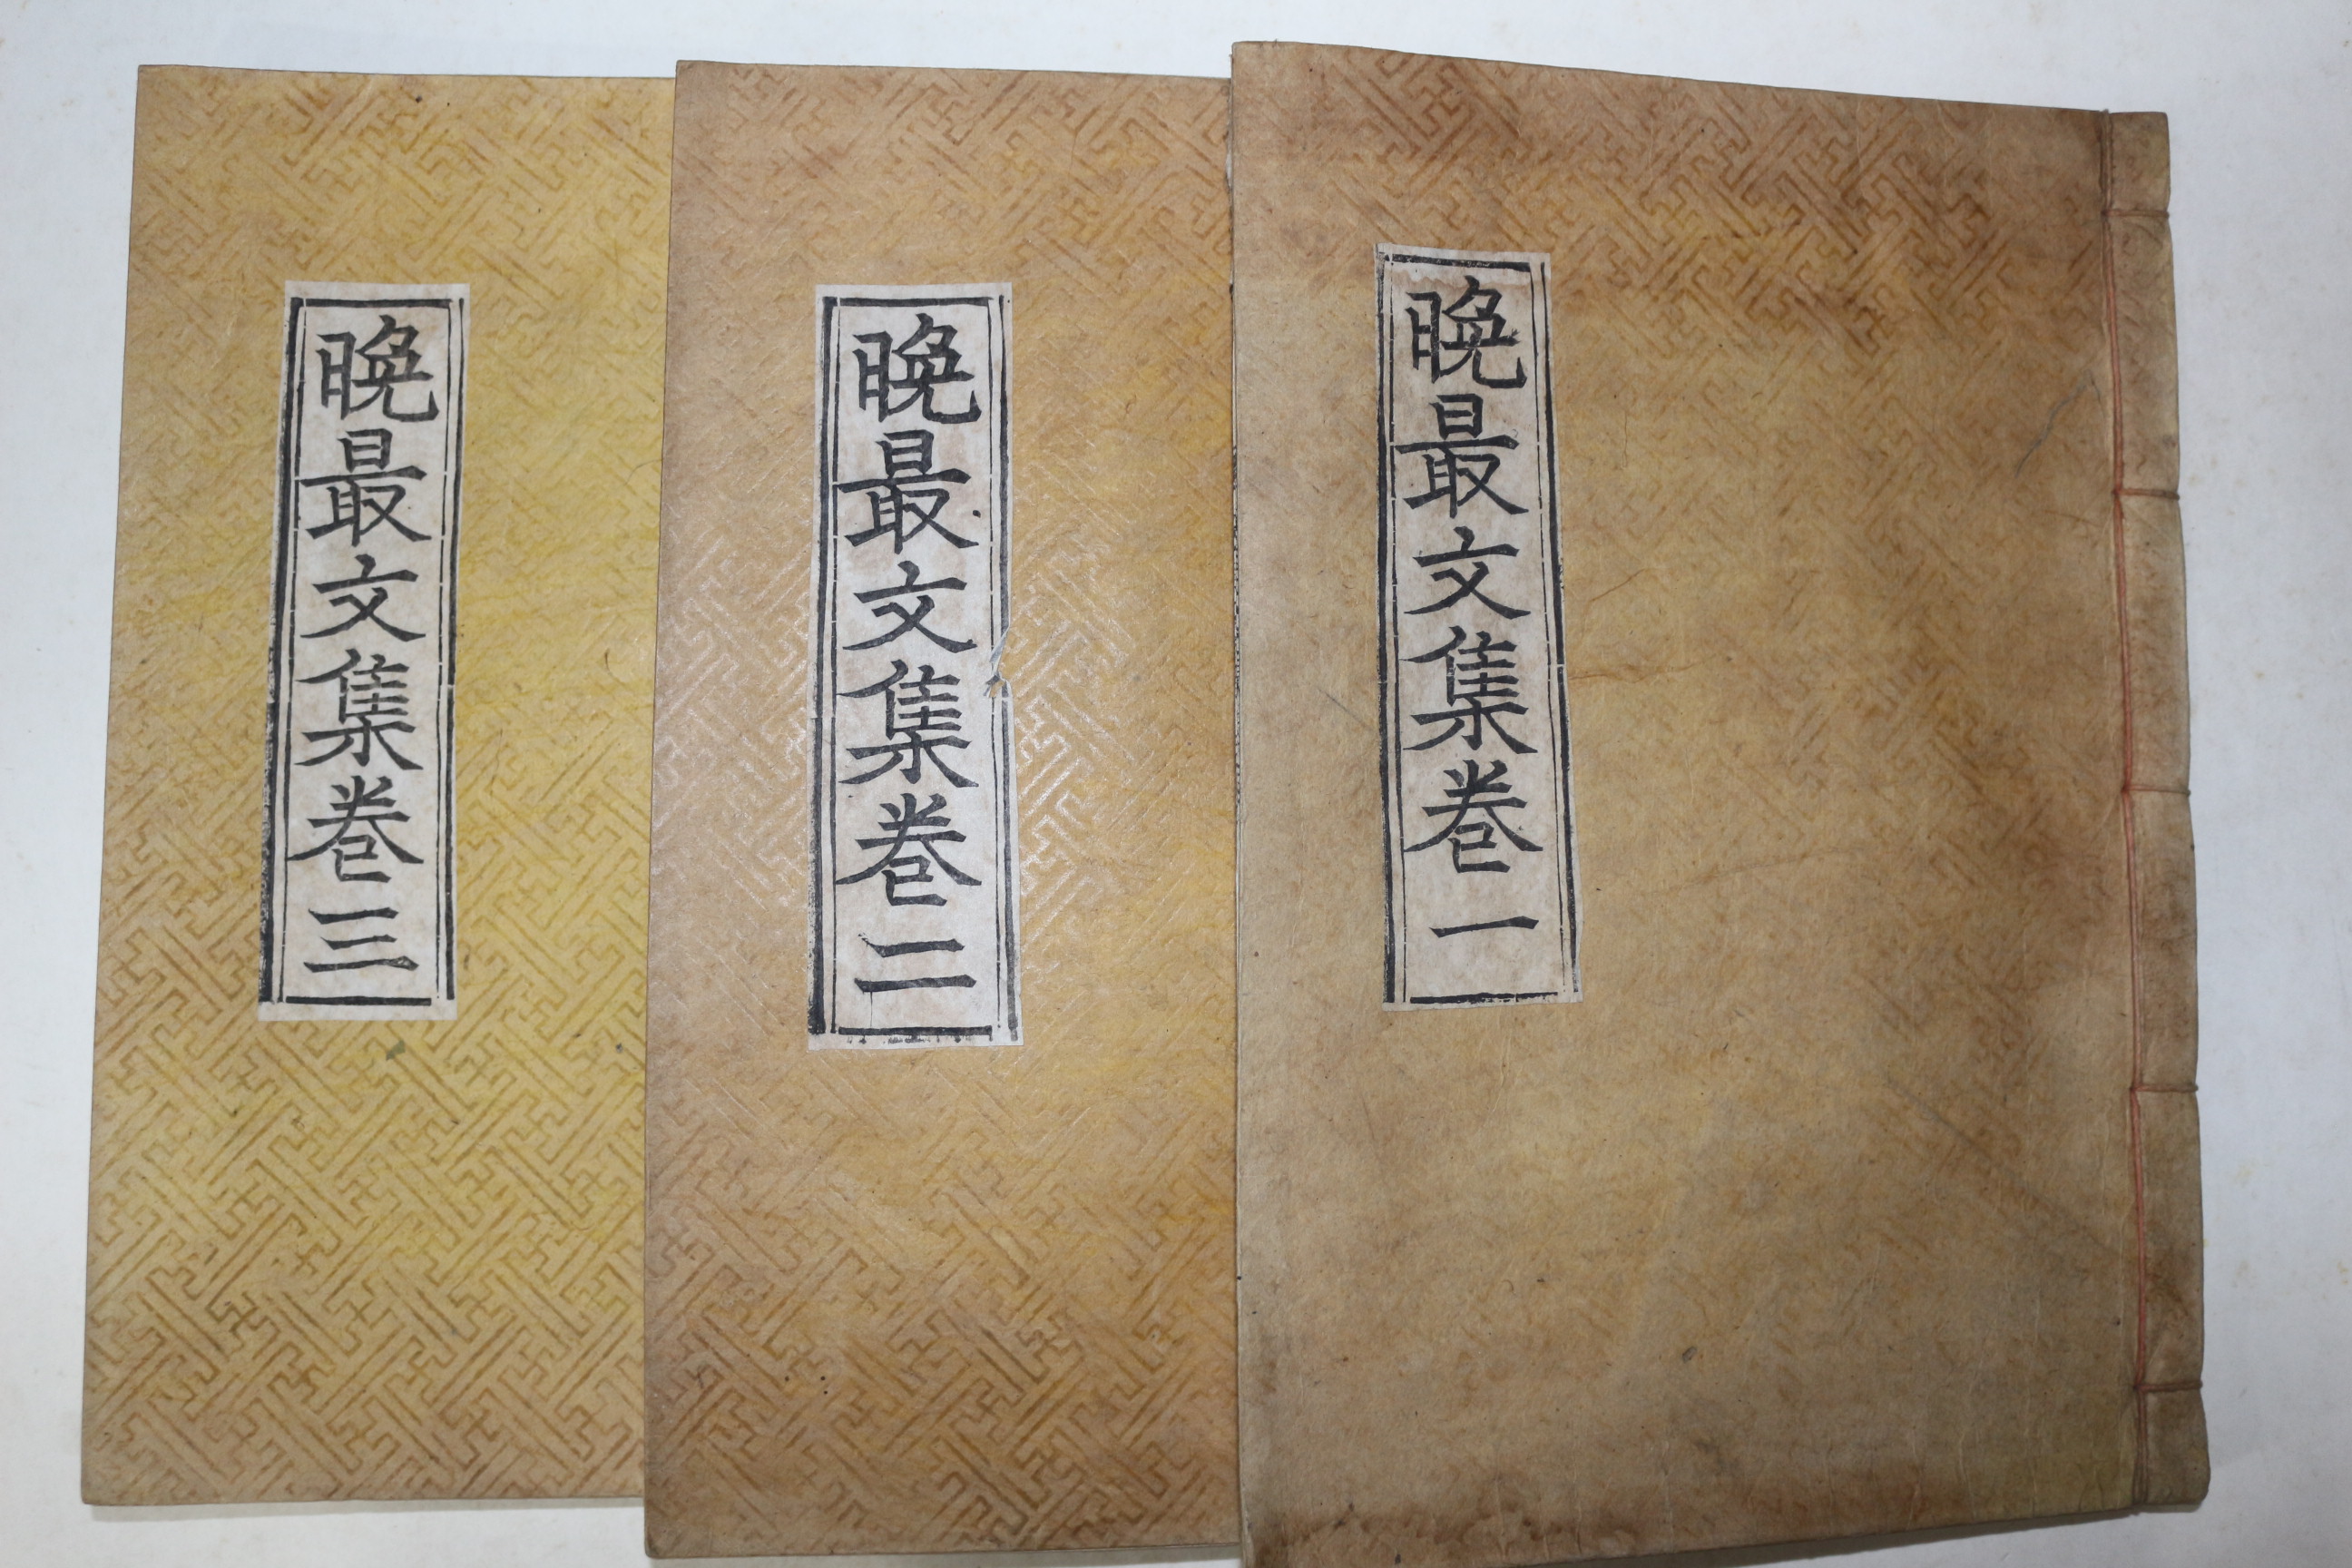 晚最文集卷一
晚最文集卷二
晚最文集卷三